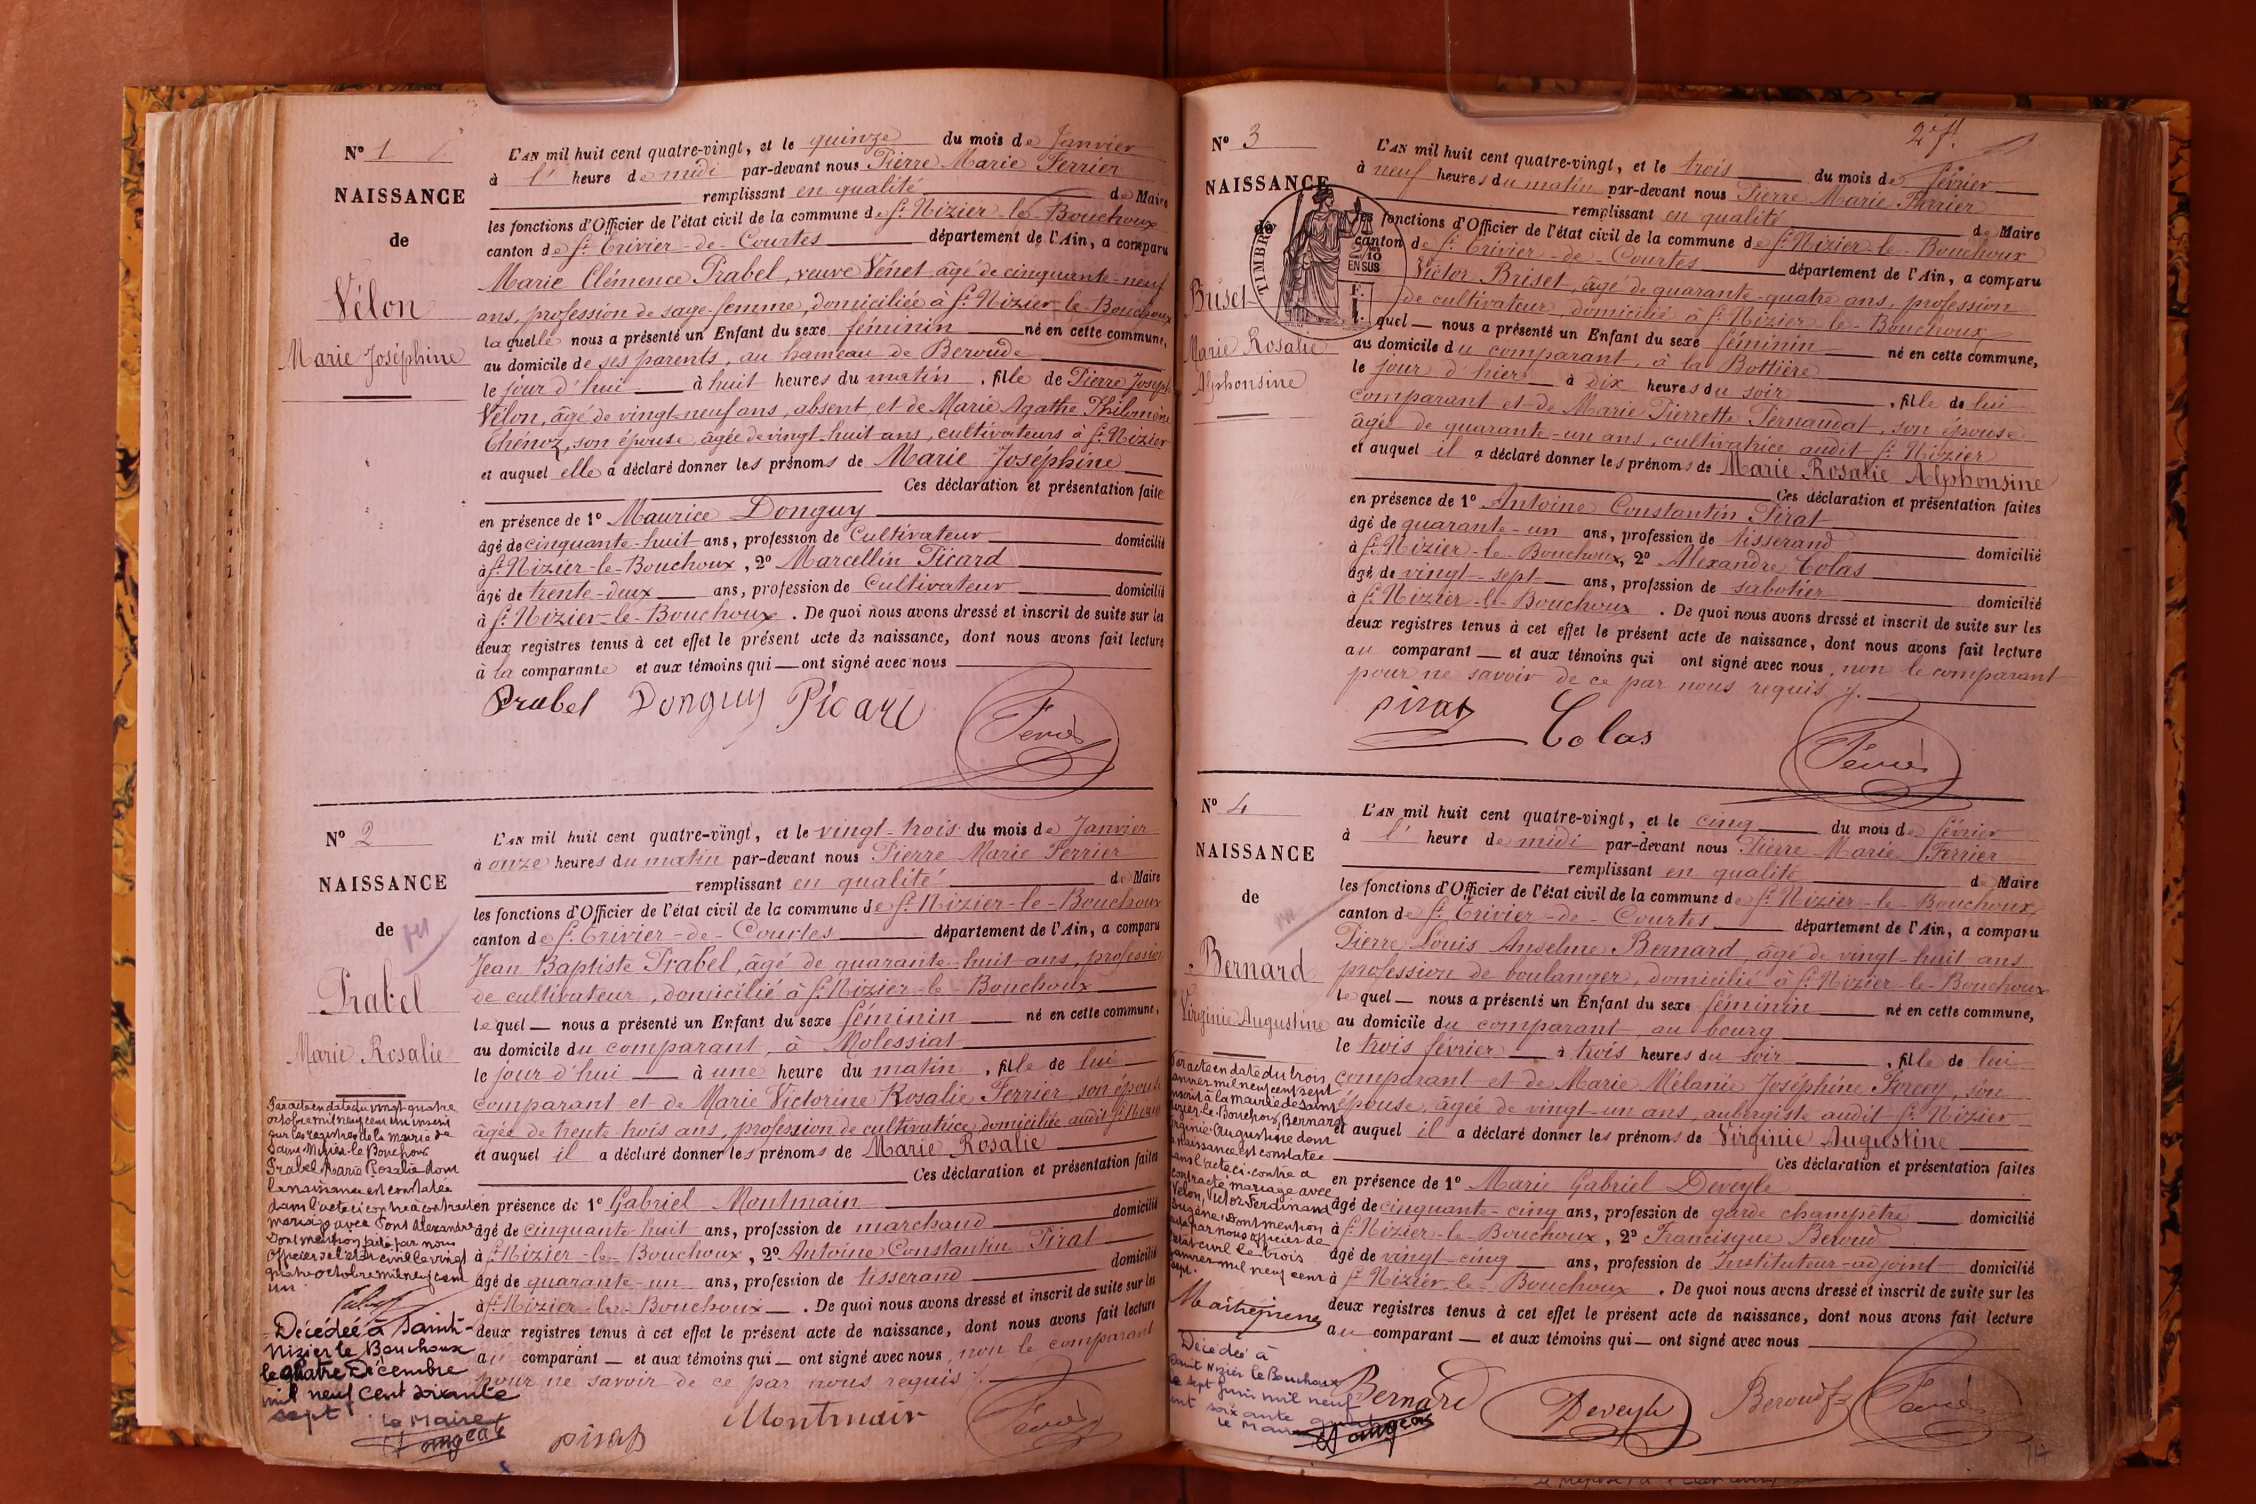 N° 1
NAISSANCE
de
Vélon
Marie Joséphine
L'AN mil huit cent quatre-vingt, et le quinze du mois de Janvier
à l' heure de midi par-devant nous Pierre Marie Ferrier
remplissant en qualité de Maire
les fonctions d'Officier de l'état civil de la commune de St Nizier-le-Bouchoux
canton de St Trivier-de-Courtes département de l'Ain, a comparu
Marie Clémence Prabel, veuve Vénet âgé de cinquante-neuf
ans, profession de sage-femme, domiciliée à St Nizier-le-Bouchoux
laquelle nous a présenté un Enfant du sexe féminin né en cette commune,
au domicile de ses parents, au hameau de Beroude
le jour d'hui à huit heures du matin, fille de Pierre Joseph
Vélon, âgé de vingt-neuf ans, absent, et de Marie Agathe Philomène
Chenoz, son épouse, âgée de vingt-huit ans, cultivateurs à St Nizier
et auquel elle a déclaré donner les prénoms de Marie Joséphine
Ces déclaration et présentation faites
en présence de 1° Maurice Donguy
âgé de cinquante-huit ans, profession de Cultivateur domicilié
à St Nizier-le-Bouchoux, 2° Marcellin Picard
âgé de trente-deux ans, profession de Cultivateur domicilié
à St Nizier-le-Bouchoux. De quoi nous avons dressé et inscrit de suite sur les
deux registres tenus à cet effet le présent acte de naissance, dont nous avons fait lecture
à la comparante et aux témoins qui ont signé avec nous
Prabel Donguy Picard
N° 2
NAISSANCE
de
Prabel
Marie Rosalie
L'AN mil huit cent quatre-vingt, et le vingt-trois du mois de Janvier
à onze heures du matin par-devant nous Pierre Marie Ferrier
remplissant en qualité de Maire
les fonctions d'Officier de l'état civil de la commune de St Nizier-le-Bouchoux
canton de St Trivier-de-Courtes département de l'Ain, a comparu
Jean Baptiste Prabel, âgé de quarante-huit ans, profession
de cultivateur, domicilié à St Nizier-le-Bouchoux
lequel nous a présenté un Enfant du sexe féminin né en cette commune,
au domicile du comparant, à Molessiat
le jour d'hui à une heure du matin, fille de lui
comparant et de Marie Victorine Rosalie Ferrier, son épouse
âgée de trente trois ans, profession de cultivatrice domiciliée audit St Nizier
et auquel il a déclaré donner les prénoms de Marie Rosalie
Ces déclaration et présentation faites
en présence de 1° Gabriel Montmain
âgé de cinquante-huit ans, profession de marchand domicilié
à St Nizier-le-Bouchoux, 2° Antoine Constantin Pirat
âgé de quarante-un ans, profession de tisserand domicilié
à St Nizier-le-Bouchoux. De quoi nous avons dressé et inscrit de suite sur les
deux registres tenus à cet effet le présent acte de naissance, dont nous avons fait lecture
au comparant et aux témoins qui ont signé avec nous, non le comparant
pour ne savoir de ce par nous requis
Montmain
pirat
Par acte en date du vingt quatre
octobre mil neuf cent un inscrit
sur les registres de la mairie de
Saint-Nizier-le Bouchoux
Prabel Marie Rosalie dont
la naissance est constatée
dans l'acte ci contre a contracté
mariage avec Pont Alexandre
Dont mention faite par nous
officier de l'état civil le vingt
quatre octobre mil neuf cent
un.
Décédée à Saint-
Nizier le Bouchoux
le quatre Décembre
mil neuf cent soixante
sept
Le Maire
N° 3
NAISSANCE
de
Briset
Marie Rosalie
Alphonsine
TIMBRE
2/10
EN SUS
F.
1.
2e ft
L'AN mil huit cent quatre-vingt, et le trois du mois de février
à neuf heures du matin par-devant nous Pierre Marie Ferrier
remplissant en qualité de Maire
les fonctions d'Officier de l'état civil de la commune de St Nizier-le-Bouchoux
canton de St Trivier-de-Courtes département de l'Ain, a comparu
Victor Briset, âgé de quarante-quatre ans, profession
de cultivateur, domicilié à St Nizier-le-Bouchoux
quel nous a présenté un Enfant du sexe féminin né en cette commune,
au domicile du comparant, à la Bottière
le jour d'hier à dix heures du soir, fille de lui
comparant et de Marie Pierrette Pernaudat, son épouse
âgée de quarante-un ans, cultivatrice audit St Nizier
et auquel il a déclaré donner les prénoms de Marie Rosalie Alphonsine
Ces déclaration et présentation faites
en présence de 1° Antoine Constantin Pirat
âgé de quarante-un ans, profession de tisserand domicilié
à St Nizier-le-Bouchoux, 2° Alexandre Colas
âgé de vingt-sept ans, profession de sabotier domicilié
à St Nizier-le-Bouchoux. De quoi nous avons dressé et inscrit de suite sur les
deux registres tenus à cet effet le présent acte de naissance, dont nous avons fait lecture
au comparant et aux témoins qui ont signé avec nous, non le comparant
pour ne savoir de ce par nous requis
pirat Colas
N° 4
NAISSANCE
de
Bernard
Virginie Augustine
L'AN mil huit cent quatre-vingt, et le cinq du mois de février
à l' heure de midi par-devant nous Pierre Marie Ferrier
remplissant en qualité de Maire
les fonctions d'Officier de l'état civil de la commune de St Nizier-le-Bouchoux
canton de St Trivier-de-Courtes département de l'Ain, a comparu
Pierre Louis Anselme Bernard, âgé de vingt-huit ans
profession de boulanger, domicilié à St Nizier-le-Bouchoux
lequel nous a présenté un Enfant du sexe féminin né en cette commune,
au domicile du comparant, au bourg
le trois février à trois heures du soir, fille de lui
comparant et de Marie Mélanie Joséphine son
épouse, âgée de vingt-un ans, aubergiste audit St Nizier
et auquel il a déclaré donner les prénoms de Virginie Augustine
Ces déclaration et présentation faites
en présence de 1° Marie Gabriel Deveyle
âgé de cinquante-cinq ans, profession de garde champêtre domicilié
à St Nizier-le-Bouchoux, 2° Francisque Beroud
âgé de vingt-cinq ans, profession de Instituteur-adjoint domicilié
à St Nizier-le-Bouchoux. De quoi nous avons dressé et inscrit de suite sur les
deux registres tenus à cet effet le présent acte de naissance, dont nous avons fait lecture
au comparant et aux témoins qui ont signé avec nous
Bernard Deveyle Beroud
Par acte en date du trois
janvier mil neuf cent sept
inscrit à la mairie de Saint
Nizier-le-Bouchoux, Bernard
Virginie Augustine dont
la naissance est constatée
dans l'acte ci-contre a
contracté mariage avec
Vélon, Victor Ferdinand
Eugène. Dont mention
faite par nous officier de
l'état civil le trois
janvier mil neuf cent
sept.
Décédée à
Saint Nizier le Bouchoux
le sept juin mil neuf
cent soixante
Le Maire